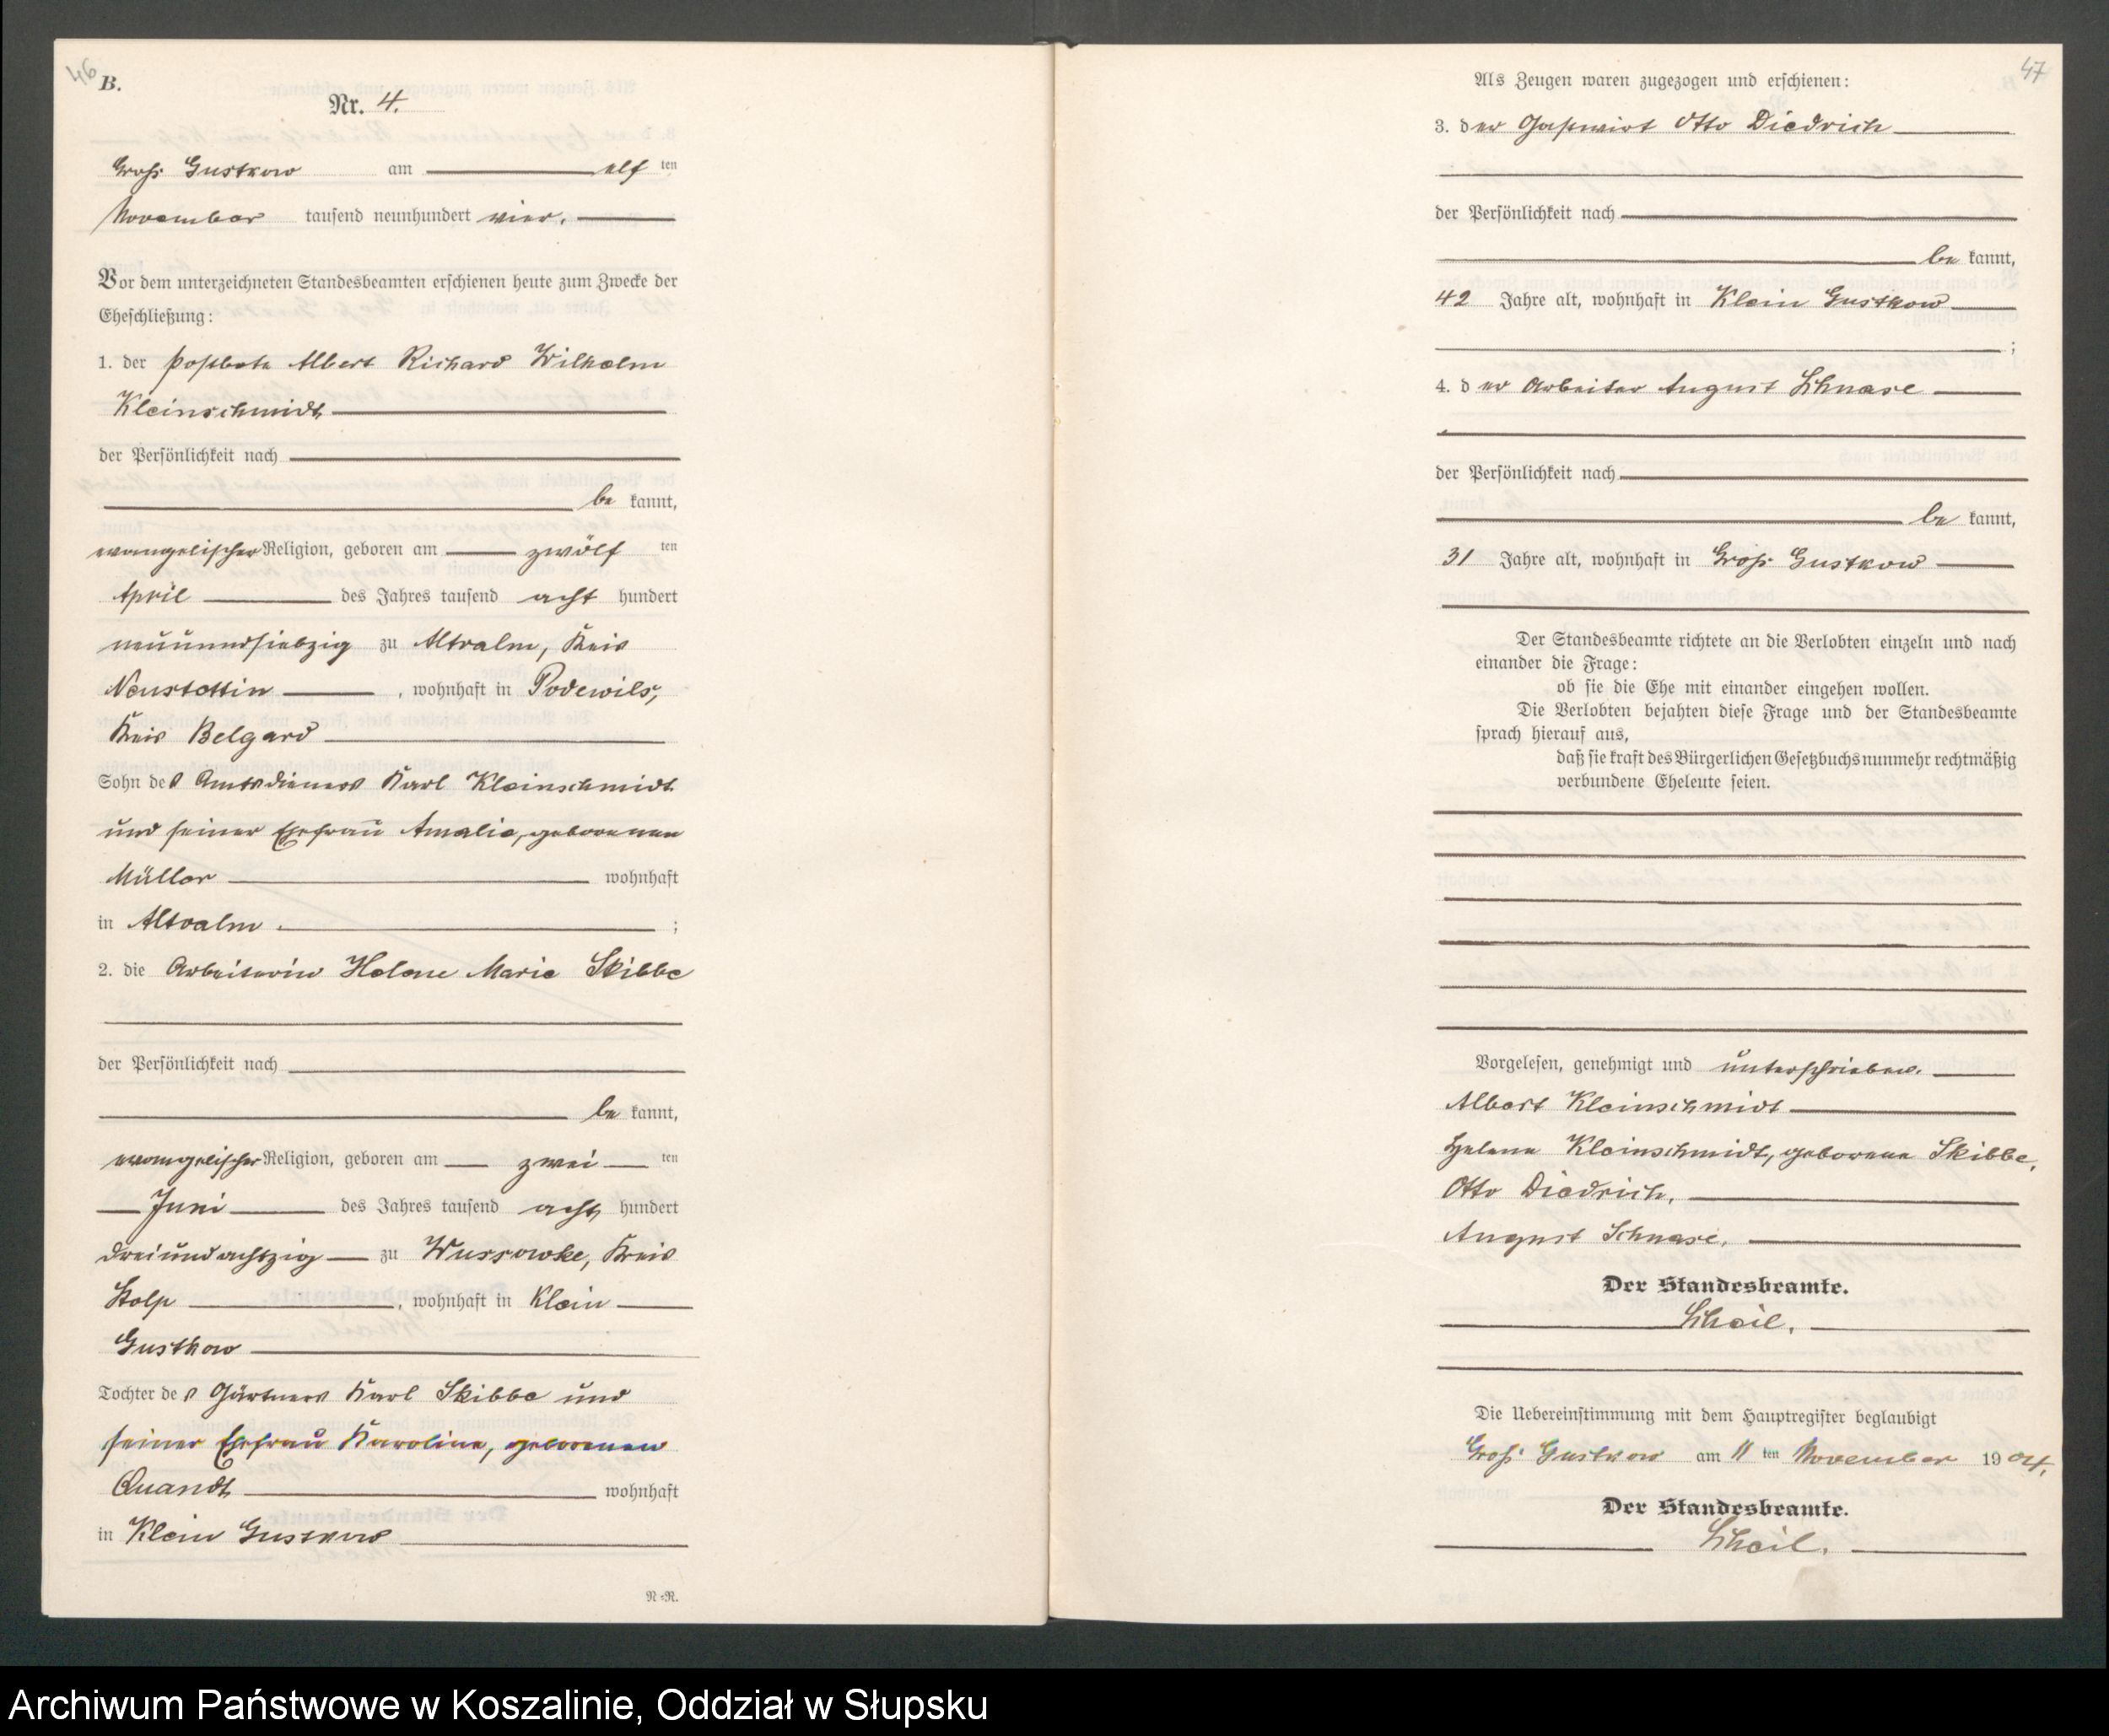 46
B.
Nr. 4.
Groß Gustkow am elf ten
November tausend neunhundert vier.
Vor dem unterzeichneten Standesbeamten erschienen heute zum Zwecke der
Eheschließung:
1. der Postbote Albert Richard Wilhelm
Kleinschmidt
der Persönlichkeit nach
be kannt,
evangelischer Religion, geboren am zwölf ten
April des Jahres tausend acht hundert
neunundsiebzig zu Altvalm, Kreis
Neustettin, wohnhaft in Podewils,
Kreis Belgard
Sohn des Amtsdieners Karl Kleinschmidt
und seiner Ehefrau Amalie, geborenen
Müller wohnhaft
in Altvalm.;
2. die Arbeiterin Helene Marie Skibbe
der Persönlichkeit nach
be kannt,
evangelischer Religion, geboren am zwei ten
Juni des Jahres tausend acht hundert
dreiundachtzig zu Wussowke, Kreis
Stolp, wohnhaft in Klein
Gustkow
Tochter des Gärtners Karl Skibbe und
seiner Ehefrau Karoline, geborenen
Quandt wohnhaft
in Klein Gustkow
N=R.
47
Als Zeugen waren zugezogen und erschienen:
3. der Gastwirt Otto Diedrich
der Persönlichkeit nach
be kannt,
42 Jahre alt, wohnhaft in Klein Gustkow
;
4. der Arbeiter August Schnase
der Persönlichkeit nach
be kannt,
31 Jahre alt, wohnhaft in Groß Gustkow
Der Standesbeamte richtete an die Verlobten einzeln und nach
einander die Frage:
ob sie die Ehe mit einander eingehen wollen.
Die Verlobten bejahten diese Frage und der Standesbeamte
sprach hierauf aus,
daß sie kraft des Bürgerlichen Gesetzbuchs nunmehr rechtmäßig
verbundene Eheleute seien.
Vorgelesen, genehmigt und unterschrieben.
Albert Kleinschmidt
Helene Kleinschmidt, geborene Skibbe.
Otto Diedrich.
August Schnase.
Der Standesbeamte.
Scheil.
Die Uebereinstimmung mit dem Hauptregister beglaubigt
Groß Gustkow am 11 ten November 1904.
Der Standesbeamte.
Scheil.
Archiwum Państwowe w Koszalinie, Oddział w Słupsku